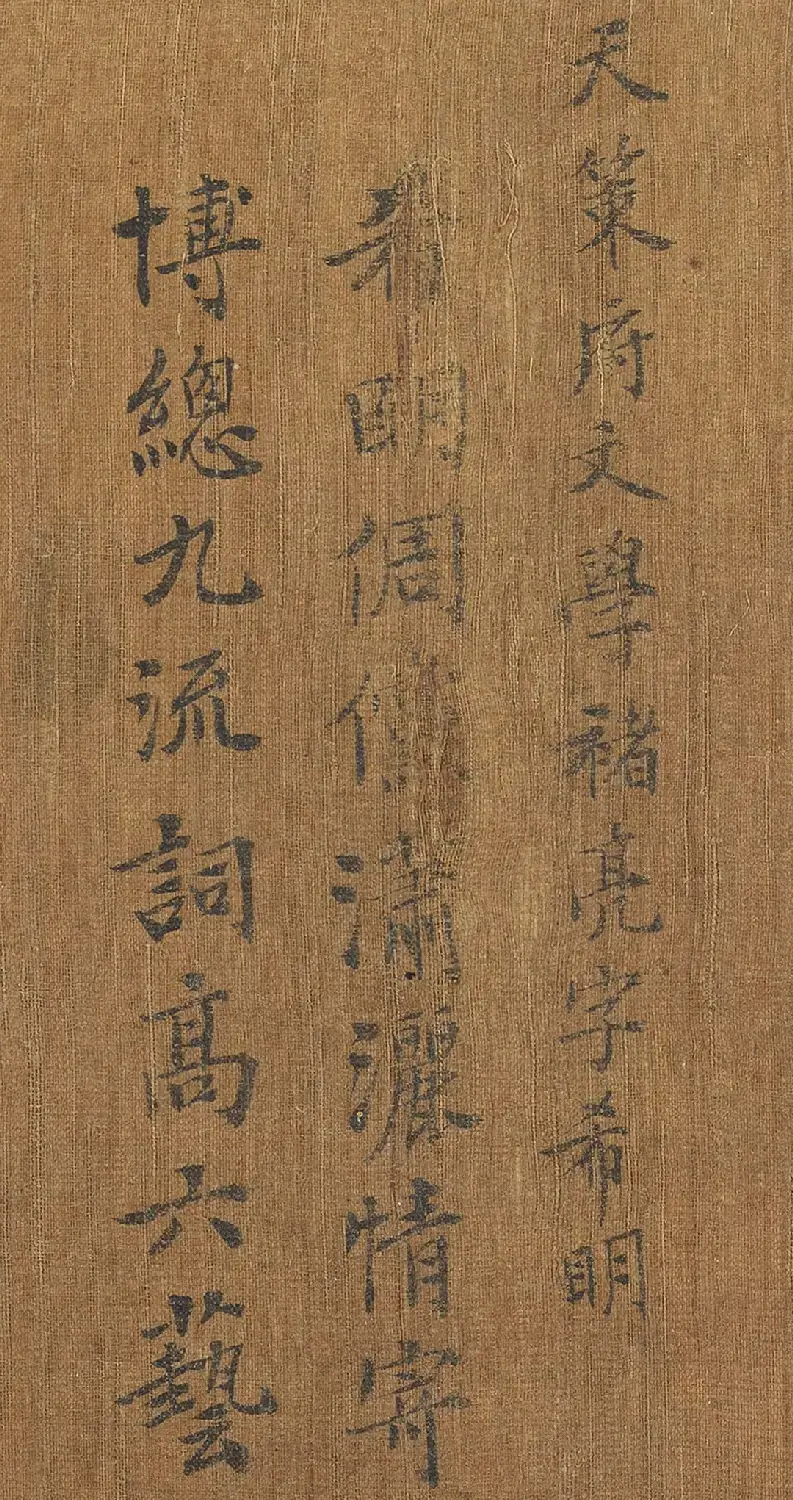 天策府文學褚亮字希明
希明倜儻瀟灑情寄
博總九流詞高六藝